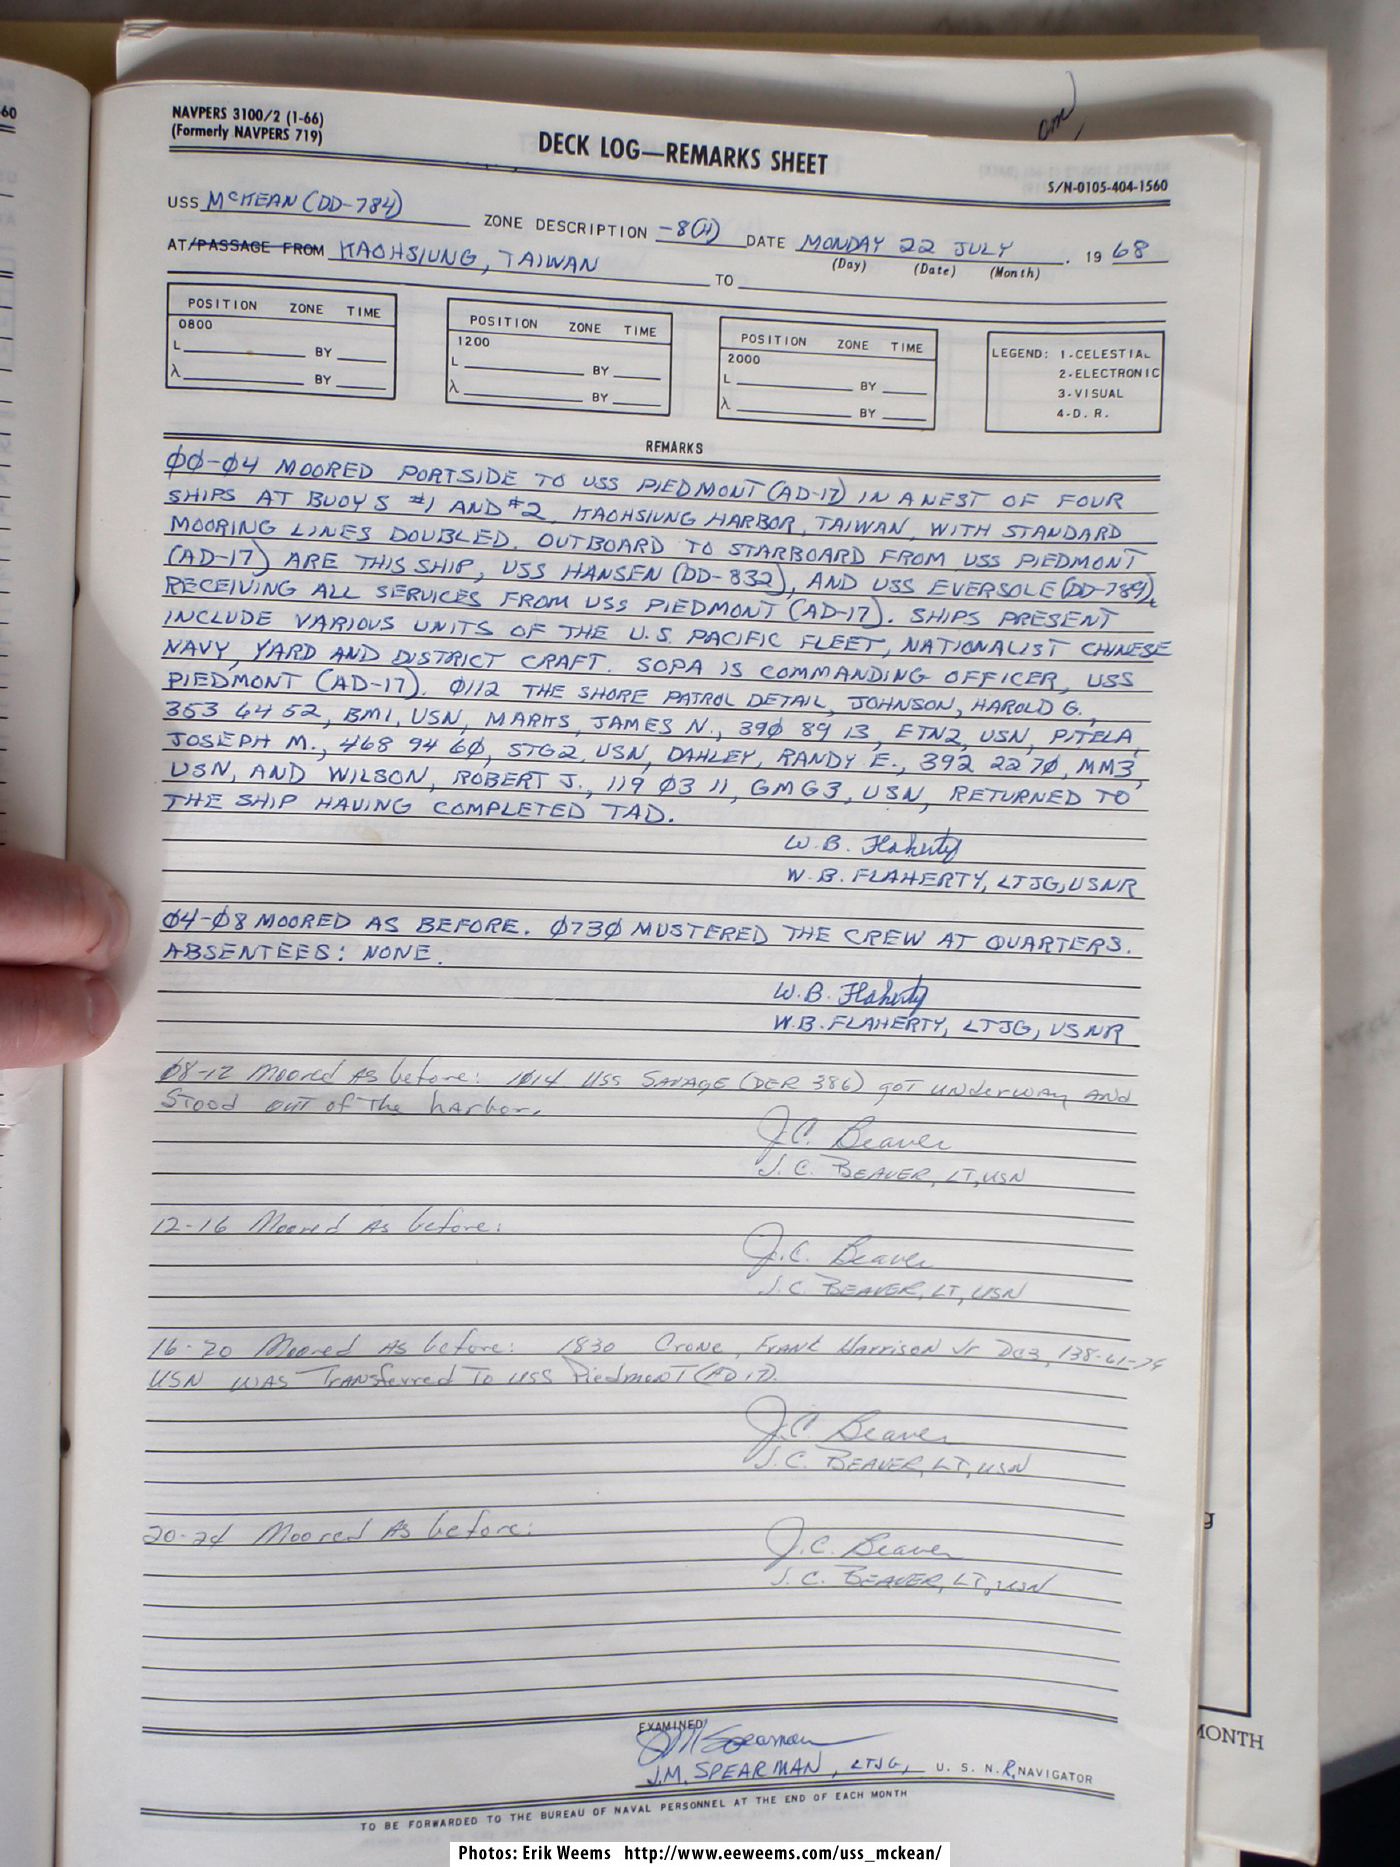 60
NAVPERS 3100/2 (1-66)
(Formerly NAVPERS 719)
DECK LOG—REMARKS SHEET
S/N-0105-404-1560
USS McKEAN (DD-784) ZONE DESCRIPTION -8(H) DATE MONDAY 22 JULY, 19 68
(Day) (Date) (Month)
AT/PASSAGE FROM KAOHSIUNG, TAIWAN TO
POSITION ZONE TIME
0800
L BY
λ BY
POSITION ZONE TIME
1200
L BY
λ BY
POSITION ZONE TIME
2000
L BY
λ BY
LEGEND: 1-CELESTIAL
2-ELECTRONIC
3-VISUAL
4-D. R.
REMARKS
00-04 MOORED PORTSIDE TO USS PIEDMONT (AD-17) IN A NEST OF FOUR
SHIPS AT BUOYS #1 AND #2, KAOHSIUNG HARBOR, TAIWAN, WITH STANDARD
MOORING LINES DOUBLED. OUTBOARD TO STARBOARD FROM USS PIEDMONT
(AD-17) ARE THIS SHIP, USS HANSEN (DD-832), AND USS EVERSOLE (DD-789),
RECEIVING ALL SERVICES FROM USS PIEDMONT (AD-17). SHIPS PRESENT
INCLUDE VARIOUS UNITS OF THE U.S. PACIFIC FLEET, NATIONALIST CHINESE
NAVY, YARD AND DISTRICT CRAFT. SOPA IS COMMANDING OFFICER, USS
PIEDMONT (AD-17). 0112 THE SHORE PATROL DETAIL, JOHNSON, HAROLD G.,
353 64 52, BM1, USN, MARKS, JAMES N., 390 89 13, ETN2, USN, PITELA,
JOSEPH M., 468 94 60, STG2, USN, DAHLEY, RANDY E., 392 22 70, MM3,
USN, AND WILSON, ROBERT J., 119 03 11, GMG3, USN, RETURNED TO
THE SHIP HAVING COMPLETED TAD.
W.B. Flaherty
W.B. FLAHERTY, LTJG, USNR
04-08 MOORED AS BEFORE. 0730 MUSTERED THE CREW AT QUARTERS.
ABSENTEES: NONE.
W.B. Flaherty
W.B. FLAHERTY, LTJG, USNR
08-12 Moored As before: 1014 USS SAVAGE (DER 386) got underway and
Stood out of the harbor.
J.C. Beaver
J.C. BEAVER, LT, USN
12-16 Moored As before:
J.C. Beaver
J.C. BEAVER, LT, USN
16-20 Moored As before: 1830 Crone, Frank Harrison Jr DC3, 138-61-74
USN WAS Transferred To USS Piedmont (AD 17).
J.C. Beaver
J.C. BEAVER, LT, USN
20-24 Moored As before:
J.C. Beaver
J.C. BEAVER, LT, USN
EXAMINED
JM Spearman
J.M. SPEARMAN, LTJG, U. S. N. R, NAVIGATOR
TO BE FORWARDED TO THE BUREAU OF NAVAL PERSONNEL AT THE END OF EACH MONTH
MONTH
Photos: Erik Weems http://www.eeweems.com/uss_mckean/